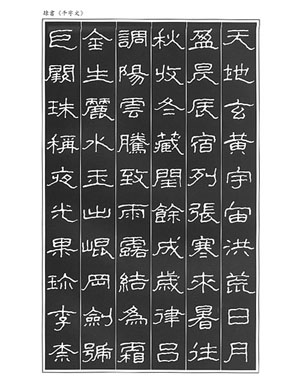 隸書《千字文》
天地玄黃宇宙洪荒日月
盈昃辰宿列張寒來暑往
秋收冬藏閏餘成歲律呂
調陽雲騰致雨露結為霜
金生麗水玉出崐岡劍號
巨闕珠稱夜光果珍李柰